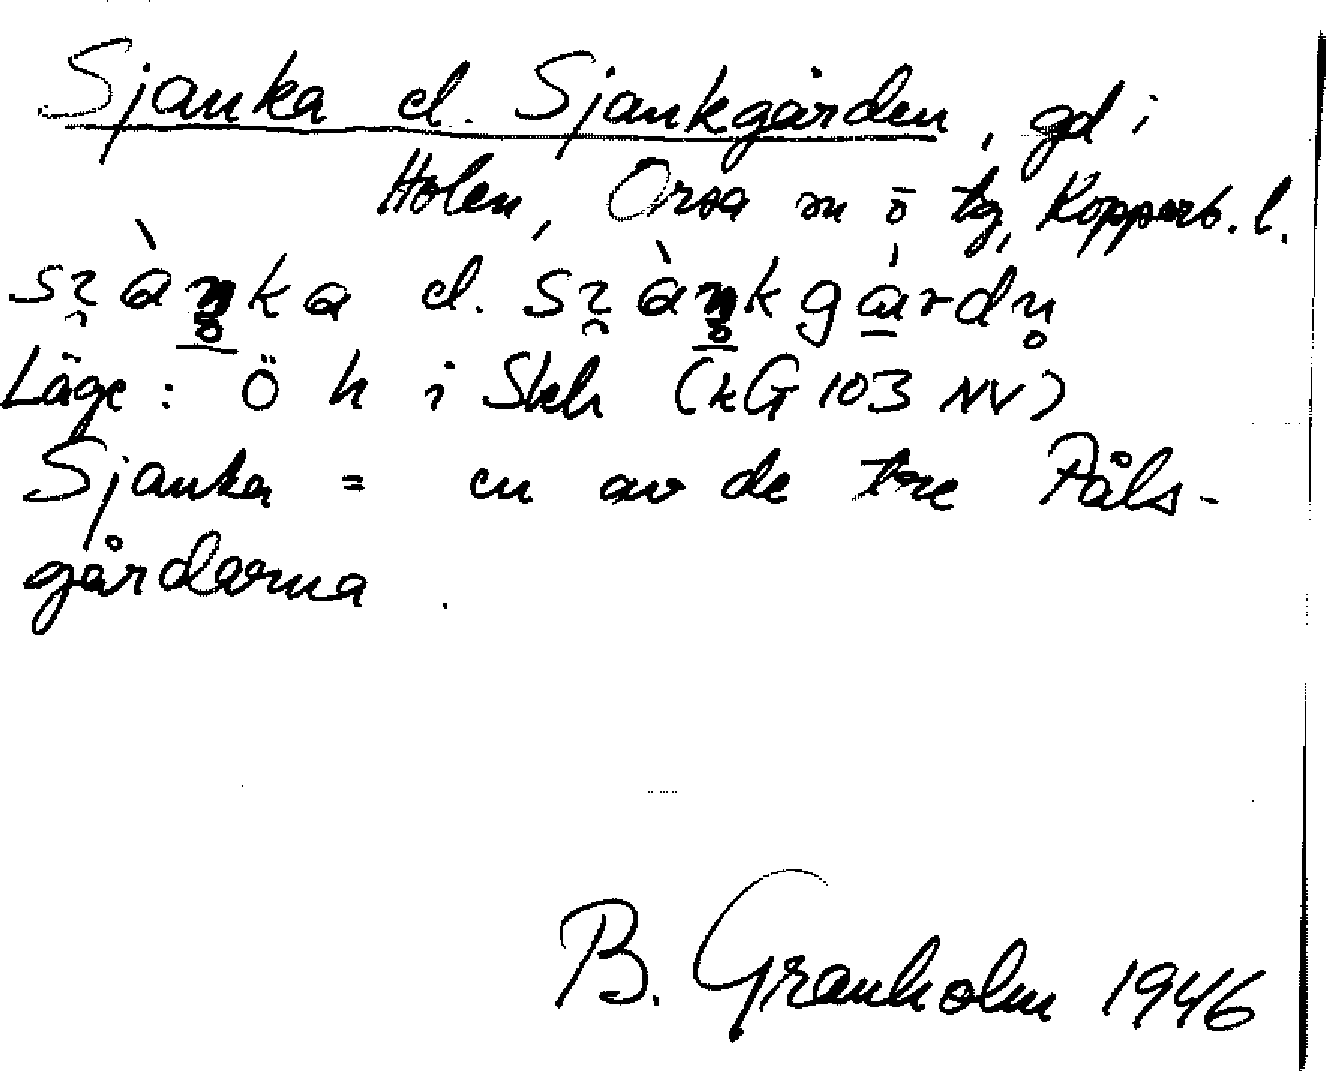 Sjanka el. Sjankgården, gd i
Holen, Orsa sn ö tg, Kopparb. l.
Läge: Ö h i Skh (kG 103 NV)
Sjanka = en av de tre Påls-
gårdarna.
B. Granholm 1946